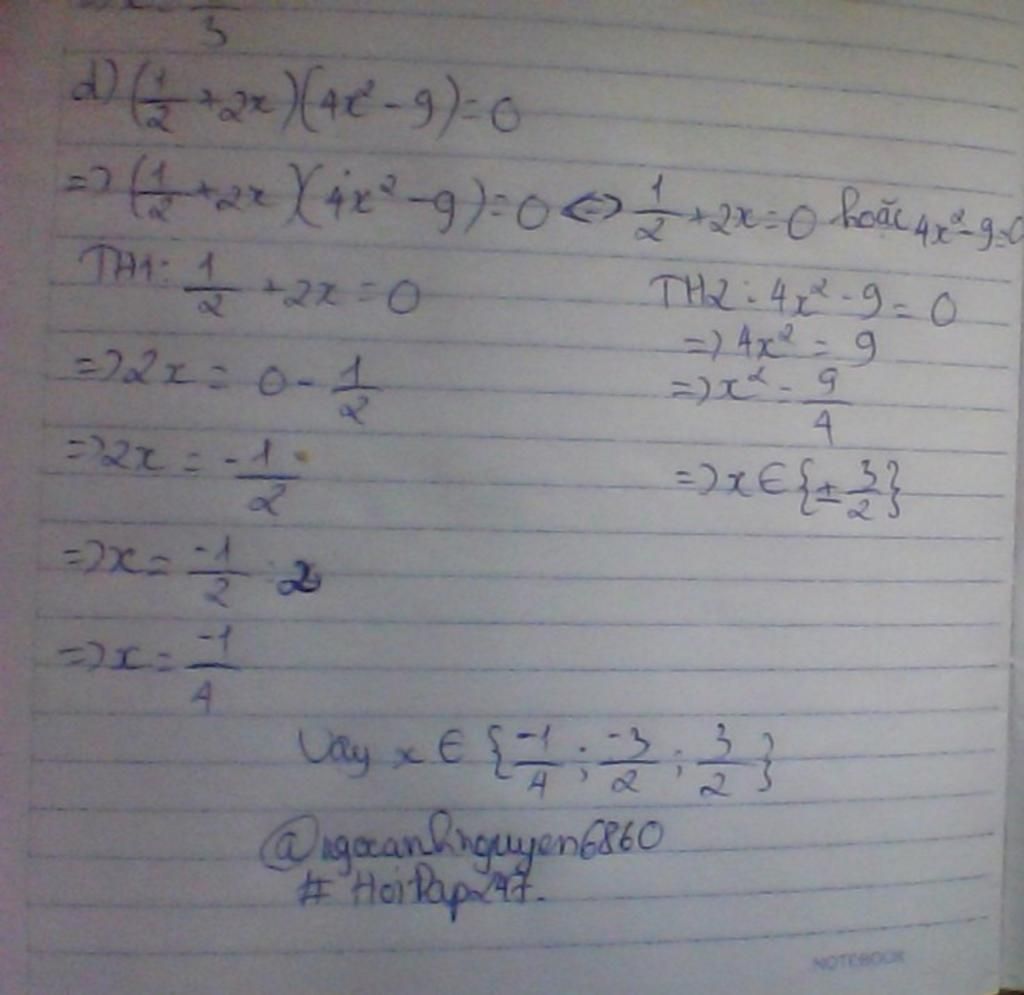 3
d) (1/2 + 2x)(4x² - 9) = 0
=> (1/2 + 2x)(4x² - 9) = 0 <=> 1/2 + 2x = 0 hoặc 4x² - 9 = 0
TH1: 1/2 + 2x = 0
=> 2x = 0 - 1/2
=> 2x = -1/2
=> x = -1/2 : 2
=> x = -1/4
TH2: 4x² - 9 = 0
=> 4x² = 9
=> x² = 9/4
=> x ∈ {± 3/2}
Vậy x ∈ {-1/4 ; -3/2 ; 3/2}
@ngocanhnguyen6860
# HoiDap247.
NOTEBOOK